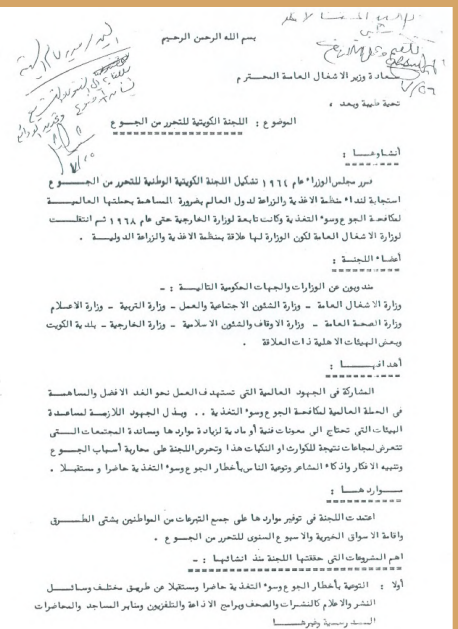 بسم الله الرحمن الرحيم
سعادة وزير الاشغال العامة المحترم
تحية طيبة وبعد ،
الموضوع : اللجنة الكويتية للتحرر من الجوع
أنشاؤها :
قرر مجلس الوزراء عام ١٩٦٤ تشكيل اللجنة الكويتية الوطنية للتحرر من الجوع
استجابة لنداء منظمة الاغذية والزراعة لدول العالم بضرورة المساهمة بحملتها العالمية
لمكافحة الجوع وسوء التغذية وكانت تابعة لوزارة الخارجية حتى عام ١٩٦٨ ثم انتقلت
لوزارة الاشغال العامة لكون الوزارة لها علاقة بمنظمة الاغذية والزراعة الدولية .
أعضاء اللجنة :
مندوبون عن الوزارات والجهات الحكومية التالية : -
وزارة الاشغال العامة - وزارة الشئون الاجتماعية والعمل - وزارة التربية - وزارة الاعلام
وزارة الصحة العامة - وزارة الاوقاف والشئون الاسلامية - وزارة الخارجية - بلدية الكويت
وبعض الهيئات الاهلية ذات العلاقة .
أهدافها :
المشاركة في الجهود العالمية التي تستهدف العمل نحو الغد الافضل والمساهمة
في الحملة العالمية لمكافحة الجوع وسوء التغذية .. وبذل الجهود اللازمة لمساعدة
البيئات التي تحتاج الى معونات فنية أو مادية لزيادة مواردها ومساندة المجتمعات التي
تتعرض لمجاعات نتيجة للكوارث او النكبات هذا وتحرص اللجنة على محاربة أسباب الجوع
وتنبيه الافكار واذكاء المشاعر وتوعية الناس بأخطار الجوع وسوء التغذية حاضرا ومستقبلا .
مواردها :
اعتمدت اللجنة في توفير مواردها على جمع التبرعات من المواطنين بشتى الطرق
واقامة الاسواق الخيرية والاسبوع السنوى للتحرر من الجوع .
اهم المشروعات التي حققتها اللجنة منذ انشائها : -
أولا : التوعية بأخطار الجوع وسوء التغذية حاضرا ومستقبلا عن طريق مختلف وسائل
النشر والاعلام كالنشرات والصحف وبرامج الاذاعة والتلفزيون ومنابر المساجد والمحاضرات